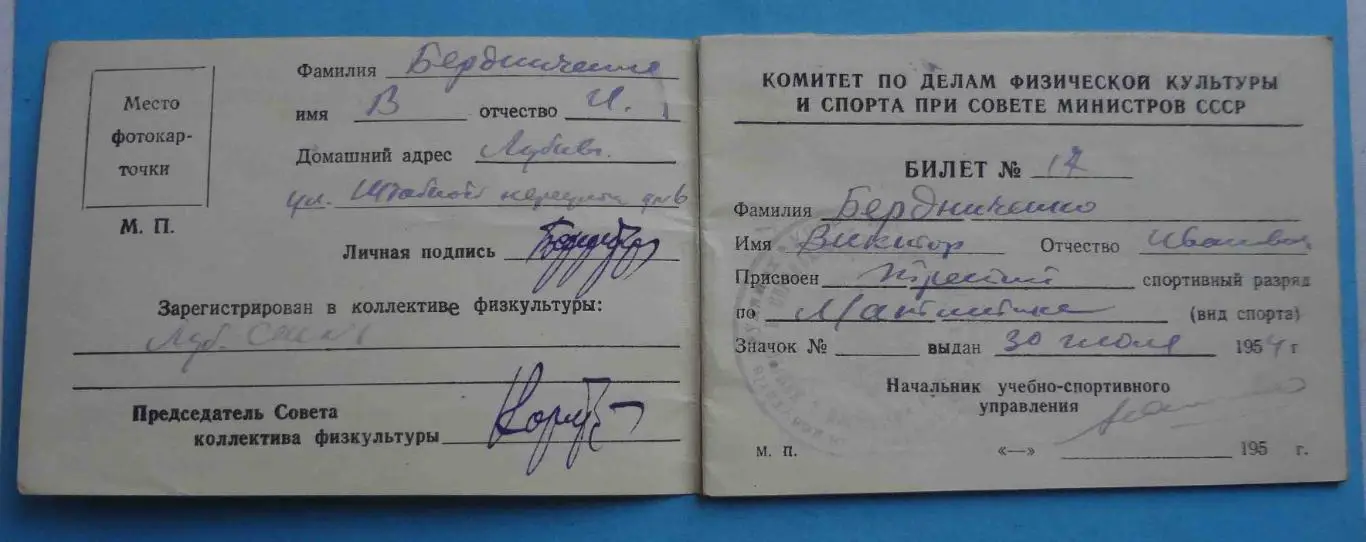 Место
фотокар-
точки
М. П.
Фамилия Бердниченко
имя В отчество И.
Домашний адрес
ул.
Личная подпись
Зарегистрирован в коллективе физкультуры:
Председатель Совета
коллектива физкультуры
КОМИТЕТ ПО ДЕЛАМ ФИЗИЧЕСКОЙ КУЛЬТУРЫ
И СПОРТА ПРИ СОВЕТЕ МИНИСТРОВ СССР
БИЛЕТ № 17
Фамилия Бердниченко
Имя Виктор Отчество Иванович
Присвоен третий спортивный разряд
по (вид спорта)
Значок № выдан 30 июля 1954 г
Начальник учебно-спортивного
управления
М. П. «—» 195 г.